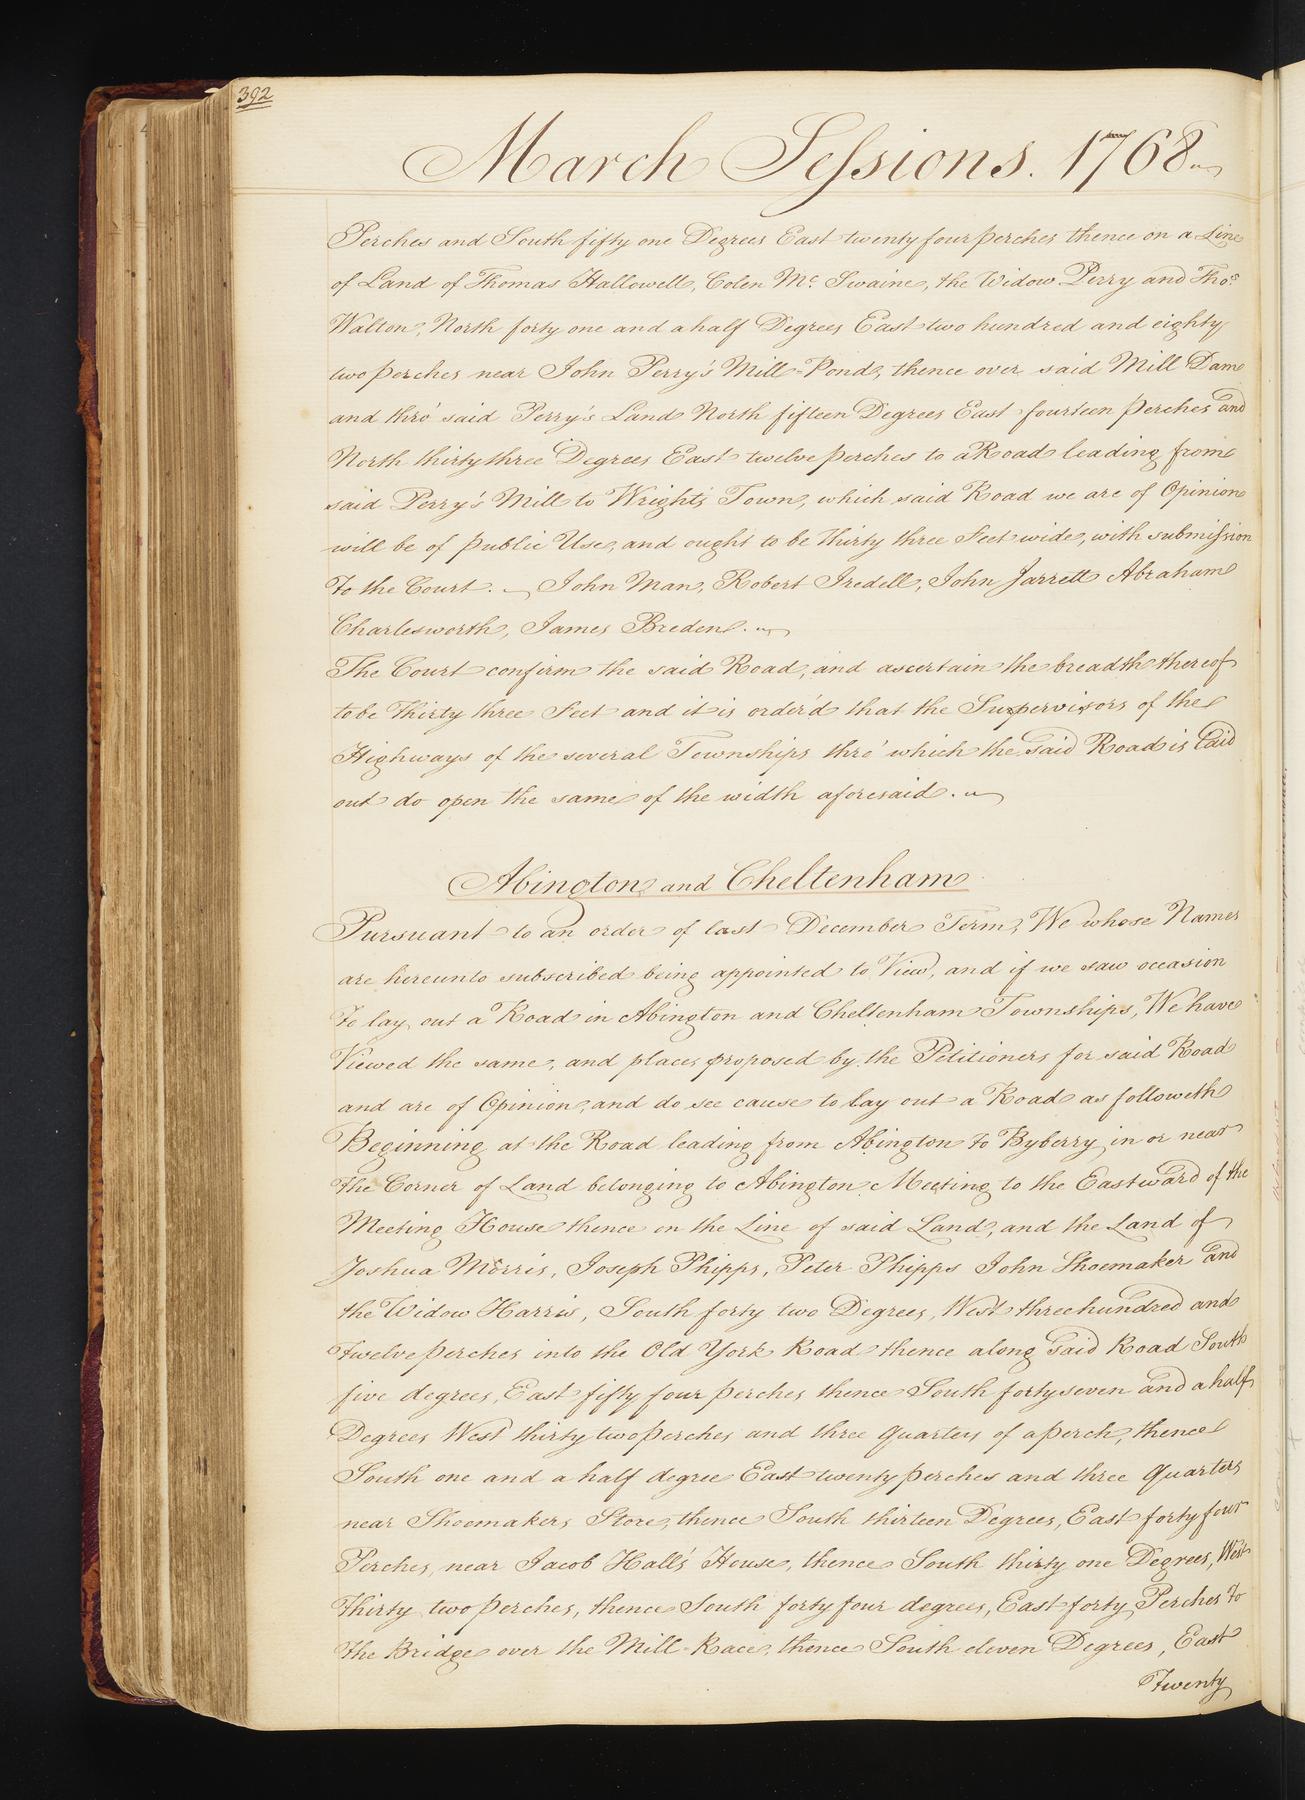 392
March Sessions. 1768
Perches and South fifty one Degrees East twenty four perches thence on a Line
of Land of Thomas Hallowell, Colen Mc Swaine, the Widow Perry and Thos
Walton, North forty one and a half Degrees East two hundred and eighty
two perches near John Perry's Mill=Pond, thence over said Mill Dam
and thro' said Perry's Land North fifteen Degrees East fourteen perches and
North thirty three Degrees East twelve perches to a Road leading from
said Perry's Mill to Wrights Town, which said Road we are of Opinion
will be of public Use, and ought to be thirty three Feet wide, with submission
to the Court. John Man, Robert Iredell, John Jarrett Abraham
Charlesworth, James Breden.
The Court confirm the said Road, and ascertain the breadth thereof
to be Thirty three Feet and it is order'd that the Supervisors of the
Highways of the several Townships thro' which the said Road is laid
out do open the same of the width aforesaid.
Abington and Cheltenham
Pursuant to an order of last December Term, We whose Names
are hereunto subscribed being appointed to View, and if we saw occasion
to lay out a Road in Abington and Cheltenham Townships, We have
Viewed the same, and places proposed by the Petitioners for said Road
and are of Opinion, and do see cause to lay out a Road as followeth
Beginning at the Road leading from Abington to Byberry in or near
the Corner of Land belonging to Abington Meeting to the Eastward of the
Meeting House thence on the Line of said Land, and the Land of
Joshua Morris, Joseph Phipps, Peter Phipps John Shoemaker and
the Widow Harris, South forty two Degrees, West three hundred and
twelve perches into the Old York Road thence along said Road South
five degrees, East fifty four perches thence South forty seven and a half
Degrees West thirty two perches and three quarters of a perch, thence
South one and a half degree East twenty perches and three quarters
near Shoemakers Store, thence South thirteen Degrees, East forty four
Perches, near Jacob Hall's House, thence South thirty one Degrees, West
thirty two perches, thence South forty four degrees, East forty Perches to
the Bridge over the Mill-Race, thence South eleven Degrees, East
Twenty